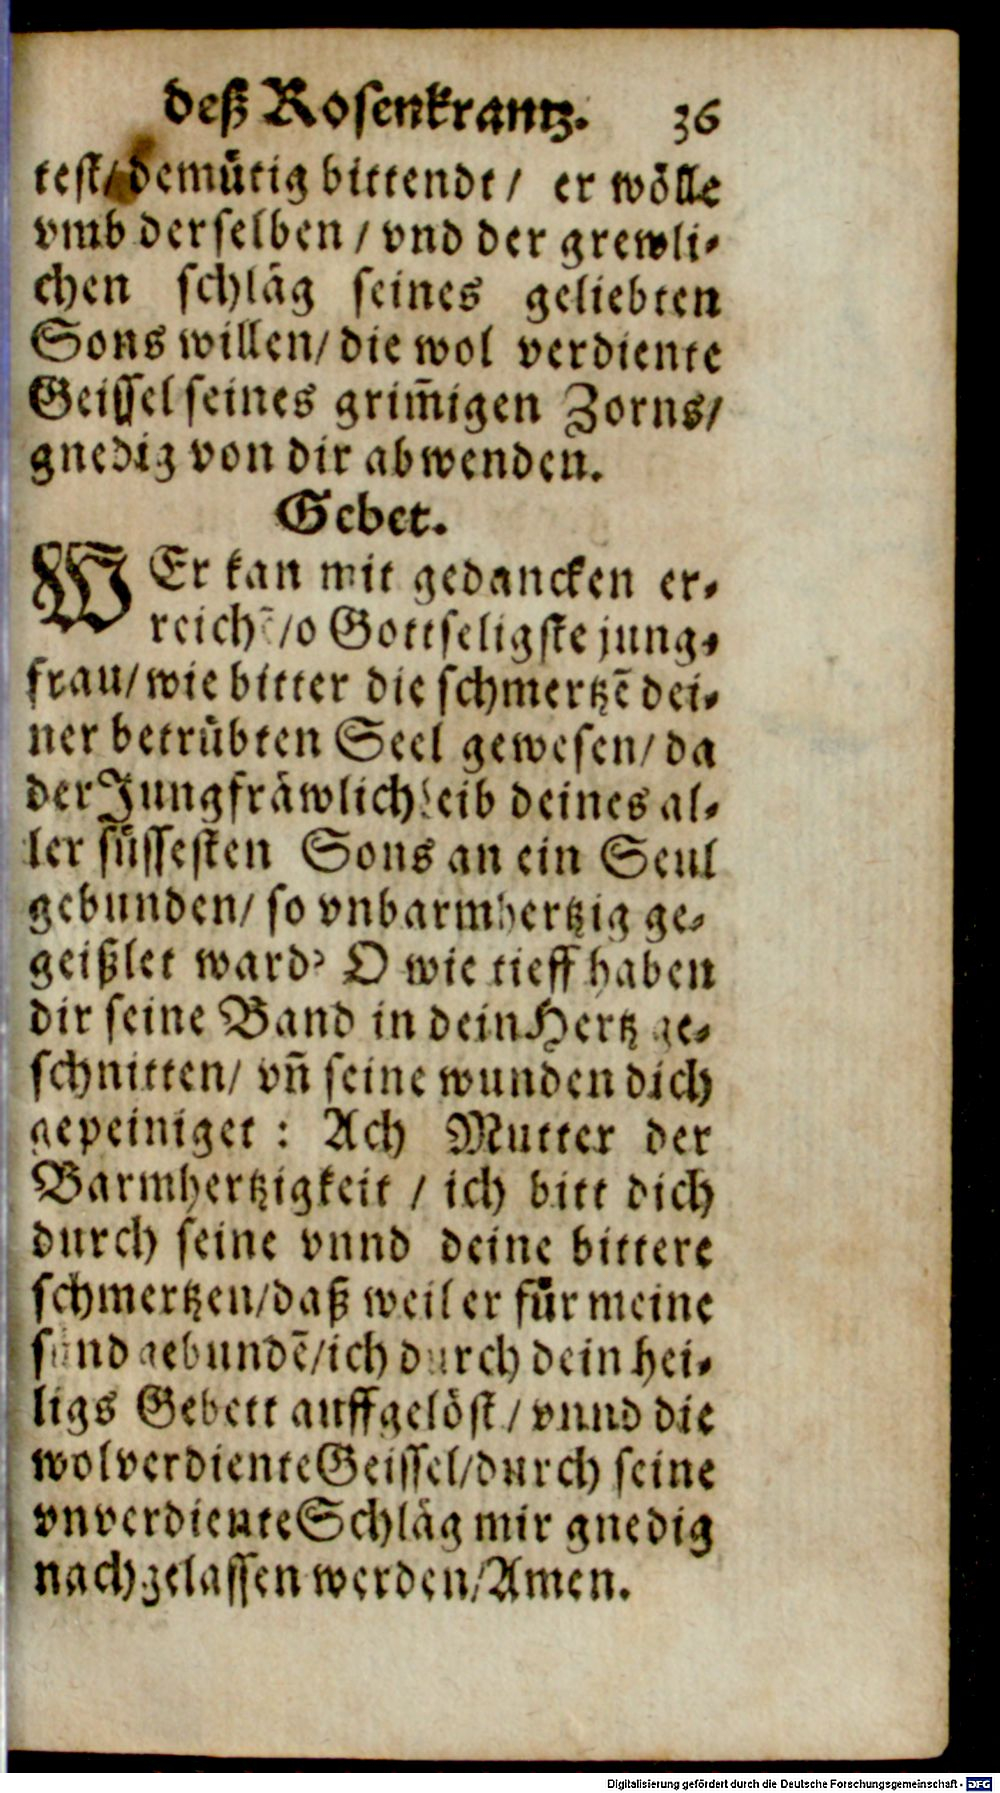 deß Rosenkrantz. 36
test/ demütig bittendt/ er wölle
vmb derselben/ vnd der grewli-
chen schläg seines geliebten
Sons willen/ die wol verdiente
Geissel seines grim̄igen Zorns/
gnedig von dir abwenden.
Gebet.
WEr kan mit gedancken er-
reichē/ o Gottseligste jung-
frau/ wie bitter die schmertzē dei-
ner betrübten Seel gewesen/ da
der Jungfräwlich leib deines al-
ler süssesten Sons an ein Seul
gebunden/ so vnbarmhertzig ge-
geißlet ward? O wie tieff haben
dir seine Band in dein Hertz ge-
schnitten/ vn̄ seine wunden dich
gepeiniget: Ach Mutter der
Barmhertzigkeit/ ich bitt dich
durch seine vnnd deine bittere
schmertzen/ daß weil er für meine
sünd gebundē/ ich durch dein hei-
ligs Gebett auffgelöst/ vnnd die
wolverdiente Geissel/ durch seine
vnverdiente Schläg mir gnedig
nachgelassen werden/ Amen.
Digitalisierung gefördert durch die Deutsche Forschungsgemeinschaft - DFG